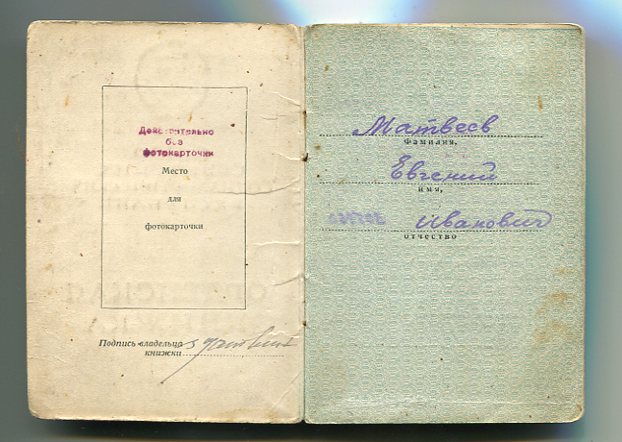 Действительно
без
фотокарточки
Место
для
фотокарточки
Подпись владельца
книжки
Матвеев
Фамилия,
Евгений
имя,
Иванович
отчество